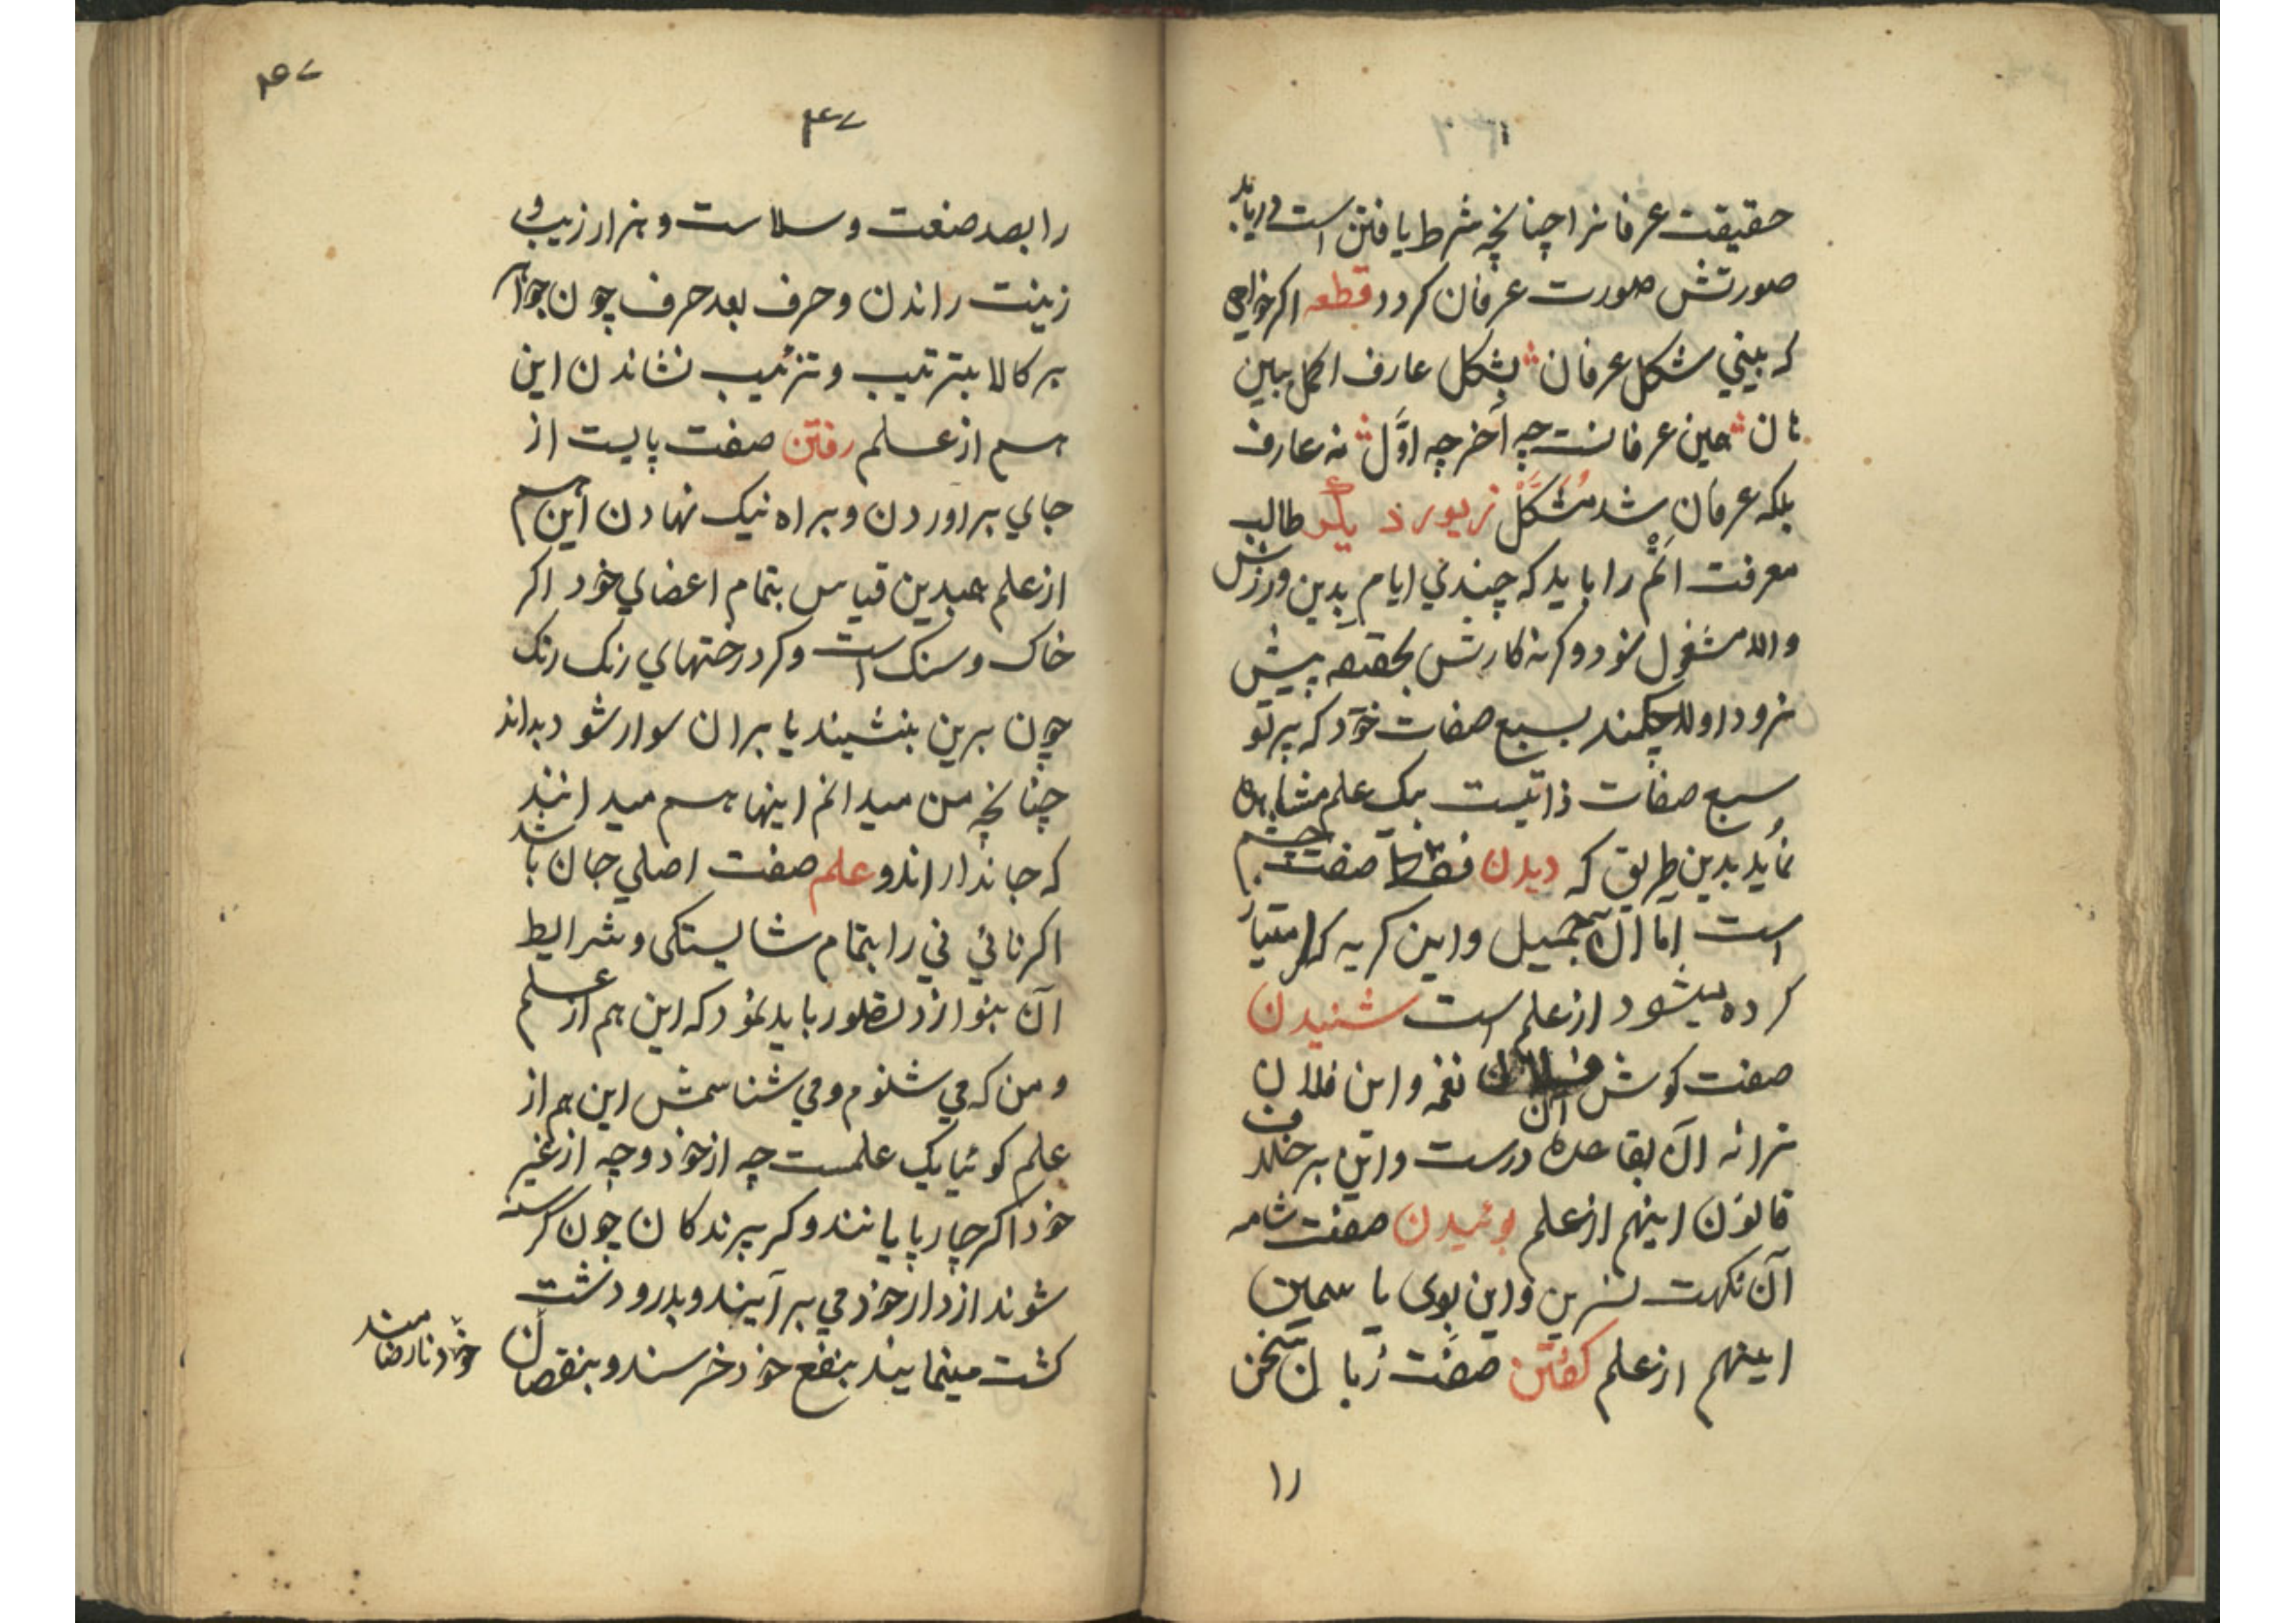 حقیقت عرفانرا چنانچه شرط یافتن است دریابد
صورتش صورت عرفان کردد قطعه اکر خواهی
که بیني شکل عرفان بشکل عارف اکمل ببین
هان عین عرفانست چه آخر چه اوّل نه عارف
بلکه عرفان شد مُشَکَّل زیور دیگر طالب
معرفت اتم را باید که چندي ایام بدین ورزش
والا مشغول شود وکرنه کارش بحقه پیش
نرود اولا چکند بسبع صفات خود که پرتو
سبع صفات ذاتیست بیک علم مشاهده
نماید بدین طریق که دیدن فقط صفت چشم
است امّا آن جمیل واین کریه که امتیاز
کرده میشود از علم است شنیدن
صفت کوش آن نغمه واین فلان
ترانه آن بقاعده درست واین برخلاف
قانون اینهم از علم بوئیدن صفت شامه
آن نکهت نسرین واین بوی یاسمین
اینهم از علم کفتن صفت زبان سخن
را
۴۷
۴۷
را بصد صنعت وسلاست وهزار زیب و
زینت راندن وحرف بعد حرف چون جواهر
بر کالا بترتیب وتزئیب نشاندن این
هم از علم رفتن صفت پایست از
جاي براوردن وبراه نیک نهادن این هم
از علم همبدین قیاس بتمام اعضاي خود اکر
خاک وسنک است وکر درختهاي رنک رنک
چون برین بنشیند یا بران سوار شود بداند
چنانچه من میدانم اینها هم میدانند
که جاندار اند و علم صفت اصلي جان باشد
اکر نائي ني را بتمام شایستکی وشرایط
آن بنوازد تصور باید نمود که این هم از علم
ومن که مي شنوم ومي شناسمش این هم از
علم کوئیا یک علمست چه از خود وچه از غیر
خود اکر چارپایانند وکر پرندکان چون کرسنه
شوند از دار خود مي برآیند وبدرو دشت
کشت مینمایند بنفع خود خرسند وبنقصان
خود نارضامند